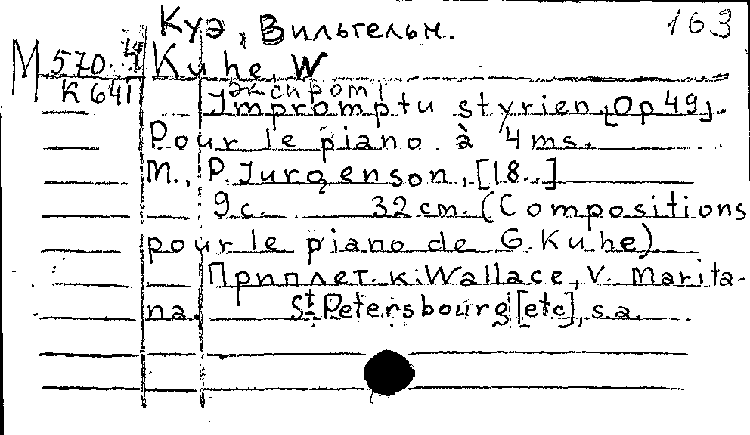 Куэ, Вильгельм. 163
М 570.4 Kuhe, W
К 641 экспромт
Impromptu styrien, [Op 49].
Pour le piano à 4 ms.
M., P. Jurgenson, [18..]
9 с. 32 cm. (Compositions
pour le piano de G. Kuhe)
Приплет. к: Wallace, V. Marita-
na. St Petersbourg [etc], s.a.